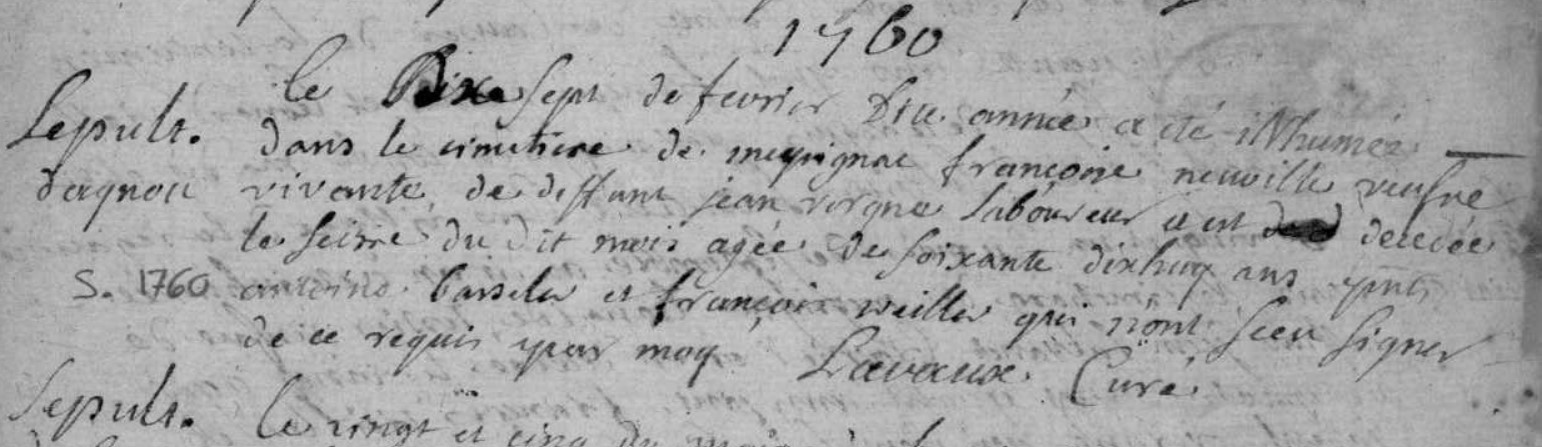 1760
Le Dixe sept de fevrier Dite année a eté inhumée
Sepult.
dans le cimetiere de françoise neuville veufve
d'agnou vivante de deffunt jean vergne laboureur et est decedée
le seisie du dit mois agée de soixante dixhuy ans pnts
S. 1760
antoine basseler et françois veiller qui n'ont sceu signer
de ce requis par moy Lavaux Curé
Sepult.
Le vingt et cinq du mois